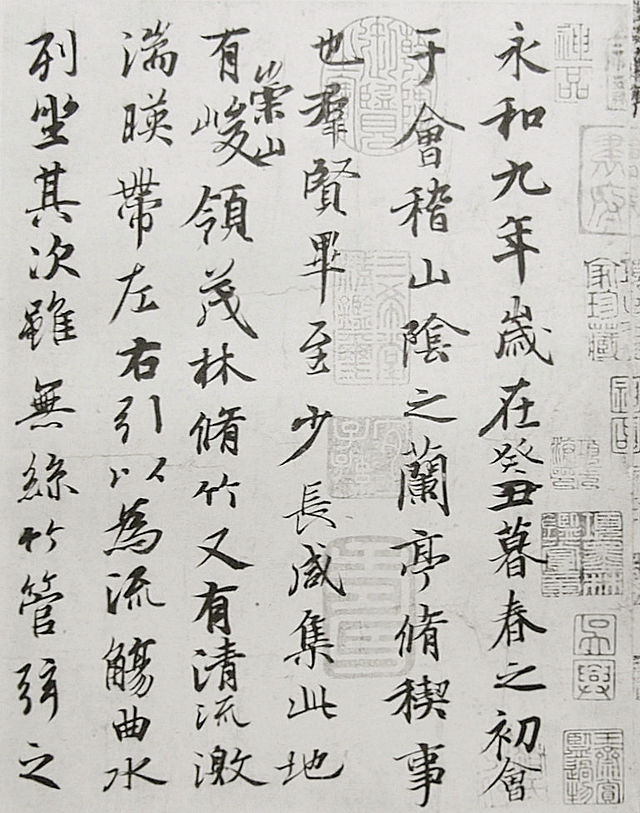 永和九年歳在癸丑暮春之初會
于會稽山陰之蘭亭脩稧事
也羣賢畢至少長咸集此地
有崇山峻領茂林脩竹又有清流激
湍暎帶左右引以為流觴曲水
列坐其次雖無絲竹管弦之
神品